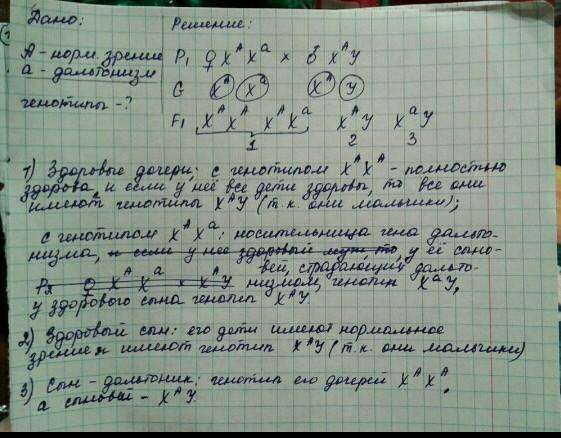 Дано:
Решение:
А - норм. зрение
а - дальтонизм
генотипы - ?
P₁ ♀ X^A X^a × ♂ X^A Y
G X^A X^a X^A Y
F₁ X^A X^A X^A X^a X^A Y X^a Y
1 2 3
1) Здоровые дочери: с генотипом X^A X^A - полностью
здорова, и если у неё все дети здоровы, то все они
имеют генотипы X^A Y (т.к. они мальчики);
с генотипом X^A X^a: носительница гена дальто-
низма, и если у нее здоровый муж, то, у её сыно-
вей, страдающих дальто-
P₂ ♀ X^A X^a × X^A Y низмом, генотип X^a Y,
у здорового сына генотип X^A Y.
2) Здоровый сын: его дети имеют нормальное
зрение и имеют генотип X^A Y (т.к. они мальчики)
3) Сын - дальтоник: генотип его дочерей X^A X^A,
а сыновей - X^A Y.